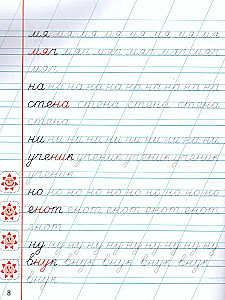 мя мя мя мя мя мя мя мя
мяч мяч мяч мяч мяч мяч
мяч
на на на на на на на на на на
стена стена стена стена
стена
ни ни ни ни ни ни ни ни ни
ученик ученик ученик ученик
ученик
но но но но но но но но но
енот енот енот енот енот
енот
ну ну ну ну ну ну ну ну ну
внук внук внук внук внук
внук
8